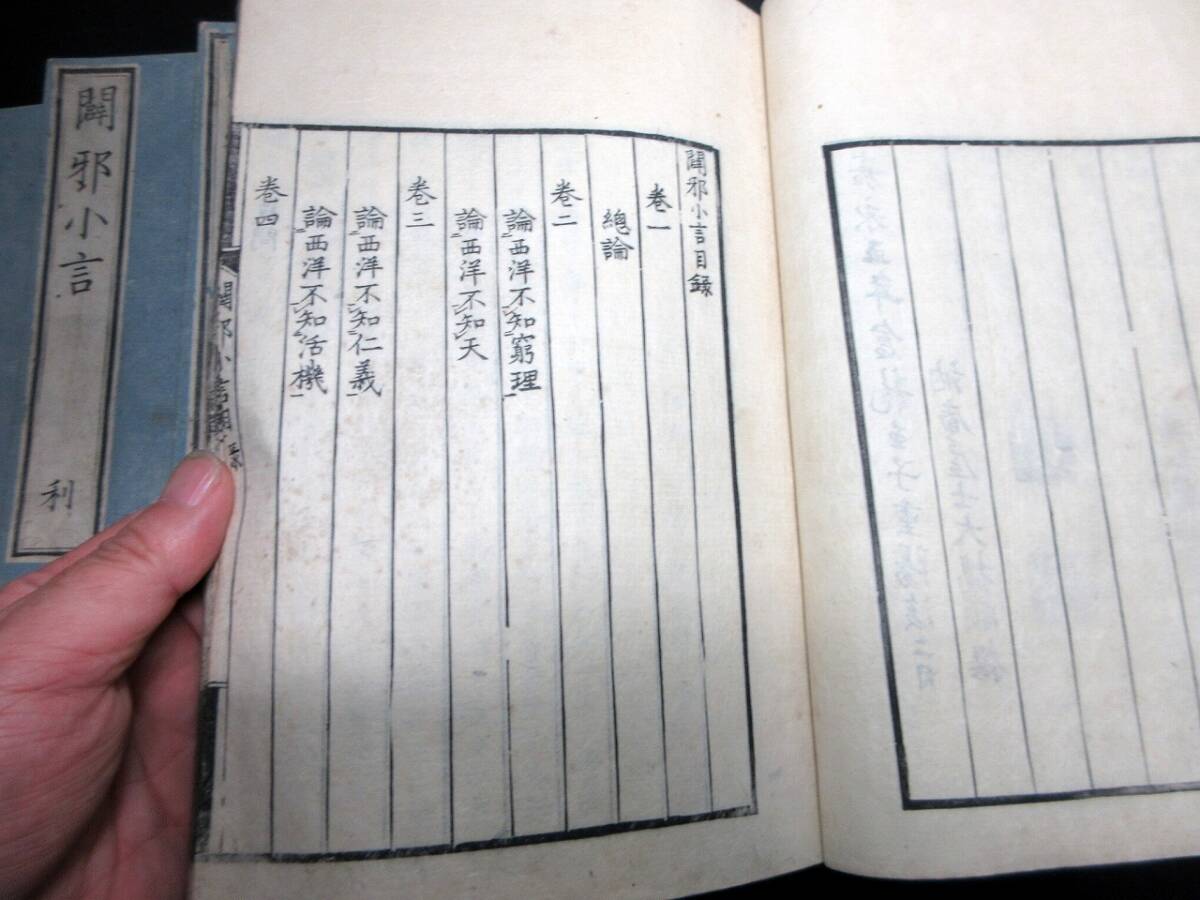 闢邪小言目錄
卷一
總論
卷二
論西洋不知窮理
論西洋不知天
卷三
論西洋不知仁義
論西洋不知活機
卷四
闢邪小言
利